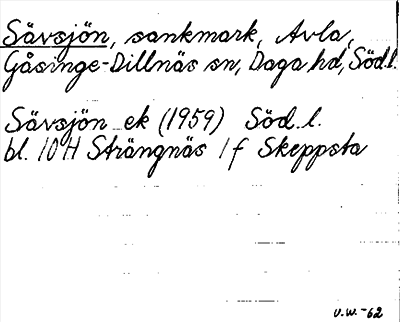 Sävsjön, sankmark, Avla,
Gåsinge-Dillnäs sn, Daga hd, Södl.
Sävsjön ek (1959) Söd.l.
bl. 10H Strängnäs 1f Skeppsta
V.W.-62